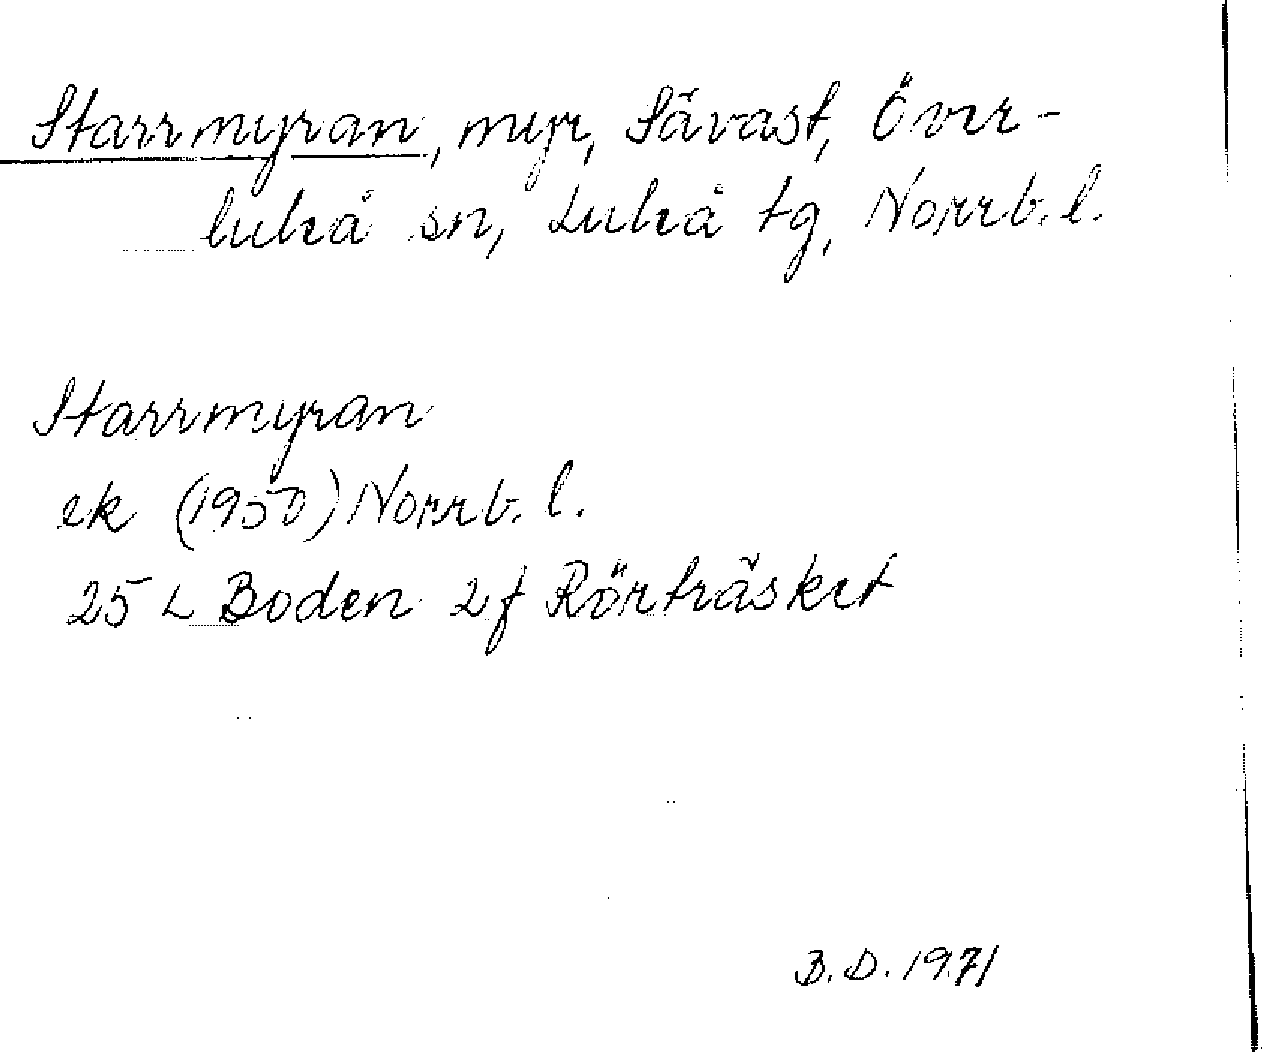 Starrmyran, myr, Sävast, Över-
luleå sn, Luleå tg, Norrb. l.
Starrmyran
ek (1950) Norrb. l.
25 L Boden 2f Rörträsket
B.D. 1971